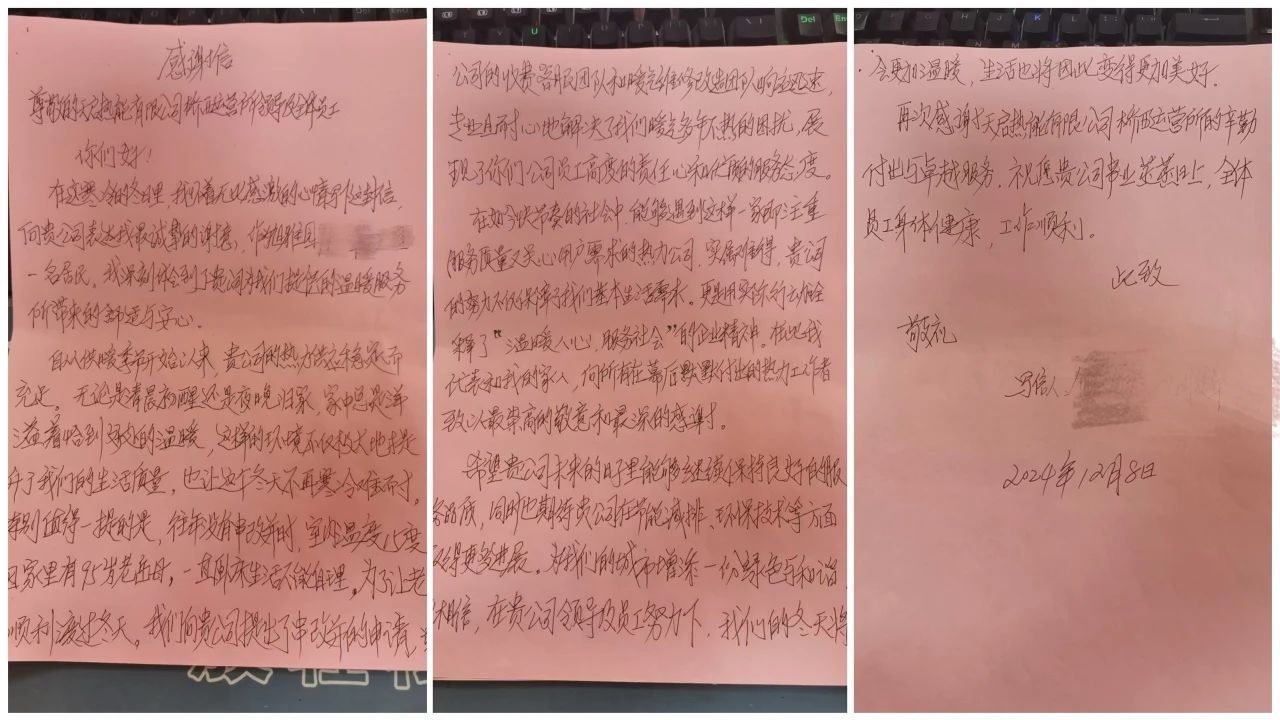 感谢信
尊敬的天启热能有限公司桥西运营所领导及全体员工
你们好!
在这寒冷的冬日里,我怀着无比感激的心情写下这封信,
向贵公司表达我最诚挚的谢意,作为
一名居民,我深刻体会到了贵公司为我们提供的温暖服务
所带来的舒适与安心。
自从供暖季开始以来,贵公司的热力供应稳定而
充足。无论是清晨初醒还是夜晚归家,家中总是洋
溢着恰到好处的温暖,这样的环境不仅极大地提
升了我们的生活质量,也让这个冬天不再寒冷难耐。
特别值得一提的是,往年没有串改并时,室内温度15度
家里有95岁老岳母,一直卧床生活不能自理。为了让老
顺利渡过冬天。我们向贵公司提出了串改并的申请,
公司的收费客服团队和暖气维修改造团队响应迅速,
专业且耐心地解决了我们暖气多年不热的困扰,展
现了你们公司员工高度的责任心和优质的服务态度。
在如今快节奏的社会中,能够遇到这样一家即注重
服务质量又关心用户需求的热力公司,实属难得,贵公司
的努力不仅保障了我们基本生活需求。更是用实际行动诠
释了“温暖人心,服务社会”的企业精神。在此我
代表和我的家人,向所有在幕后默默付出的热力工作者
致以最崇高的敬意和最深的感谢!
希望贵公司未来的日子里能够继续保持良好的服
务品质,同时也期待贵公司在节能减排、环保技术等方面
取得更多进展。为我们的城市增添一份绿色与和谐。
相信,在贵公司领导及员工努力下,我们的冬天将
会更加温暖,生活也将因此变得更加美好.
再次感谢天启热能有限公司桥西运营所的辛勤
付出与卓越服务。祝愿贵公司事业蒸蒸日上,全体
员工身体健康,工作顺利。
此致
敬礼
写信人:
2024年12月8日